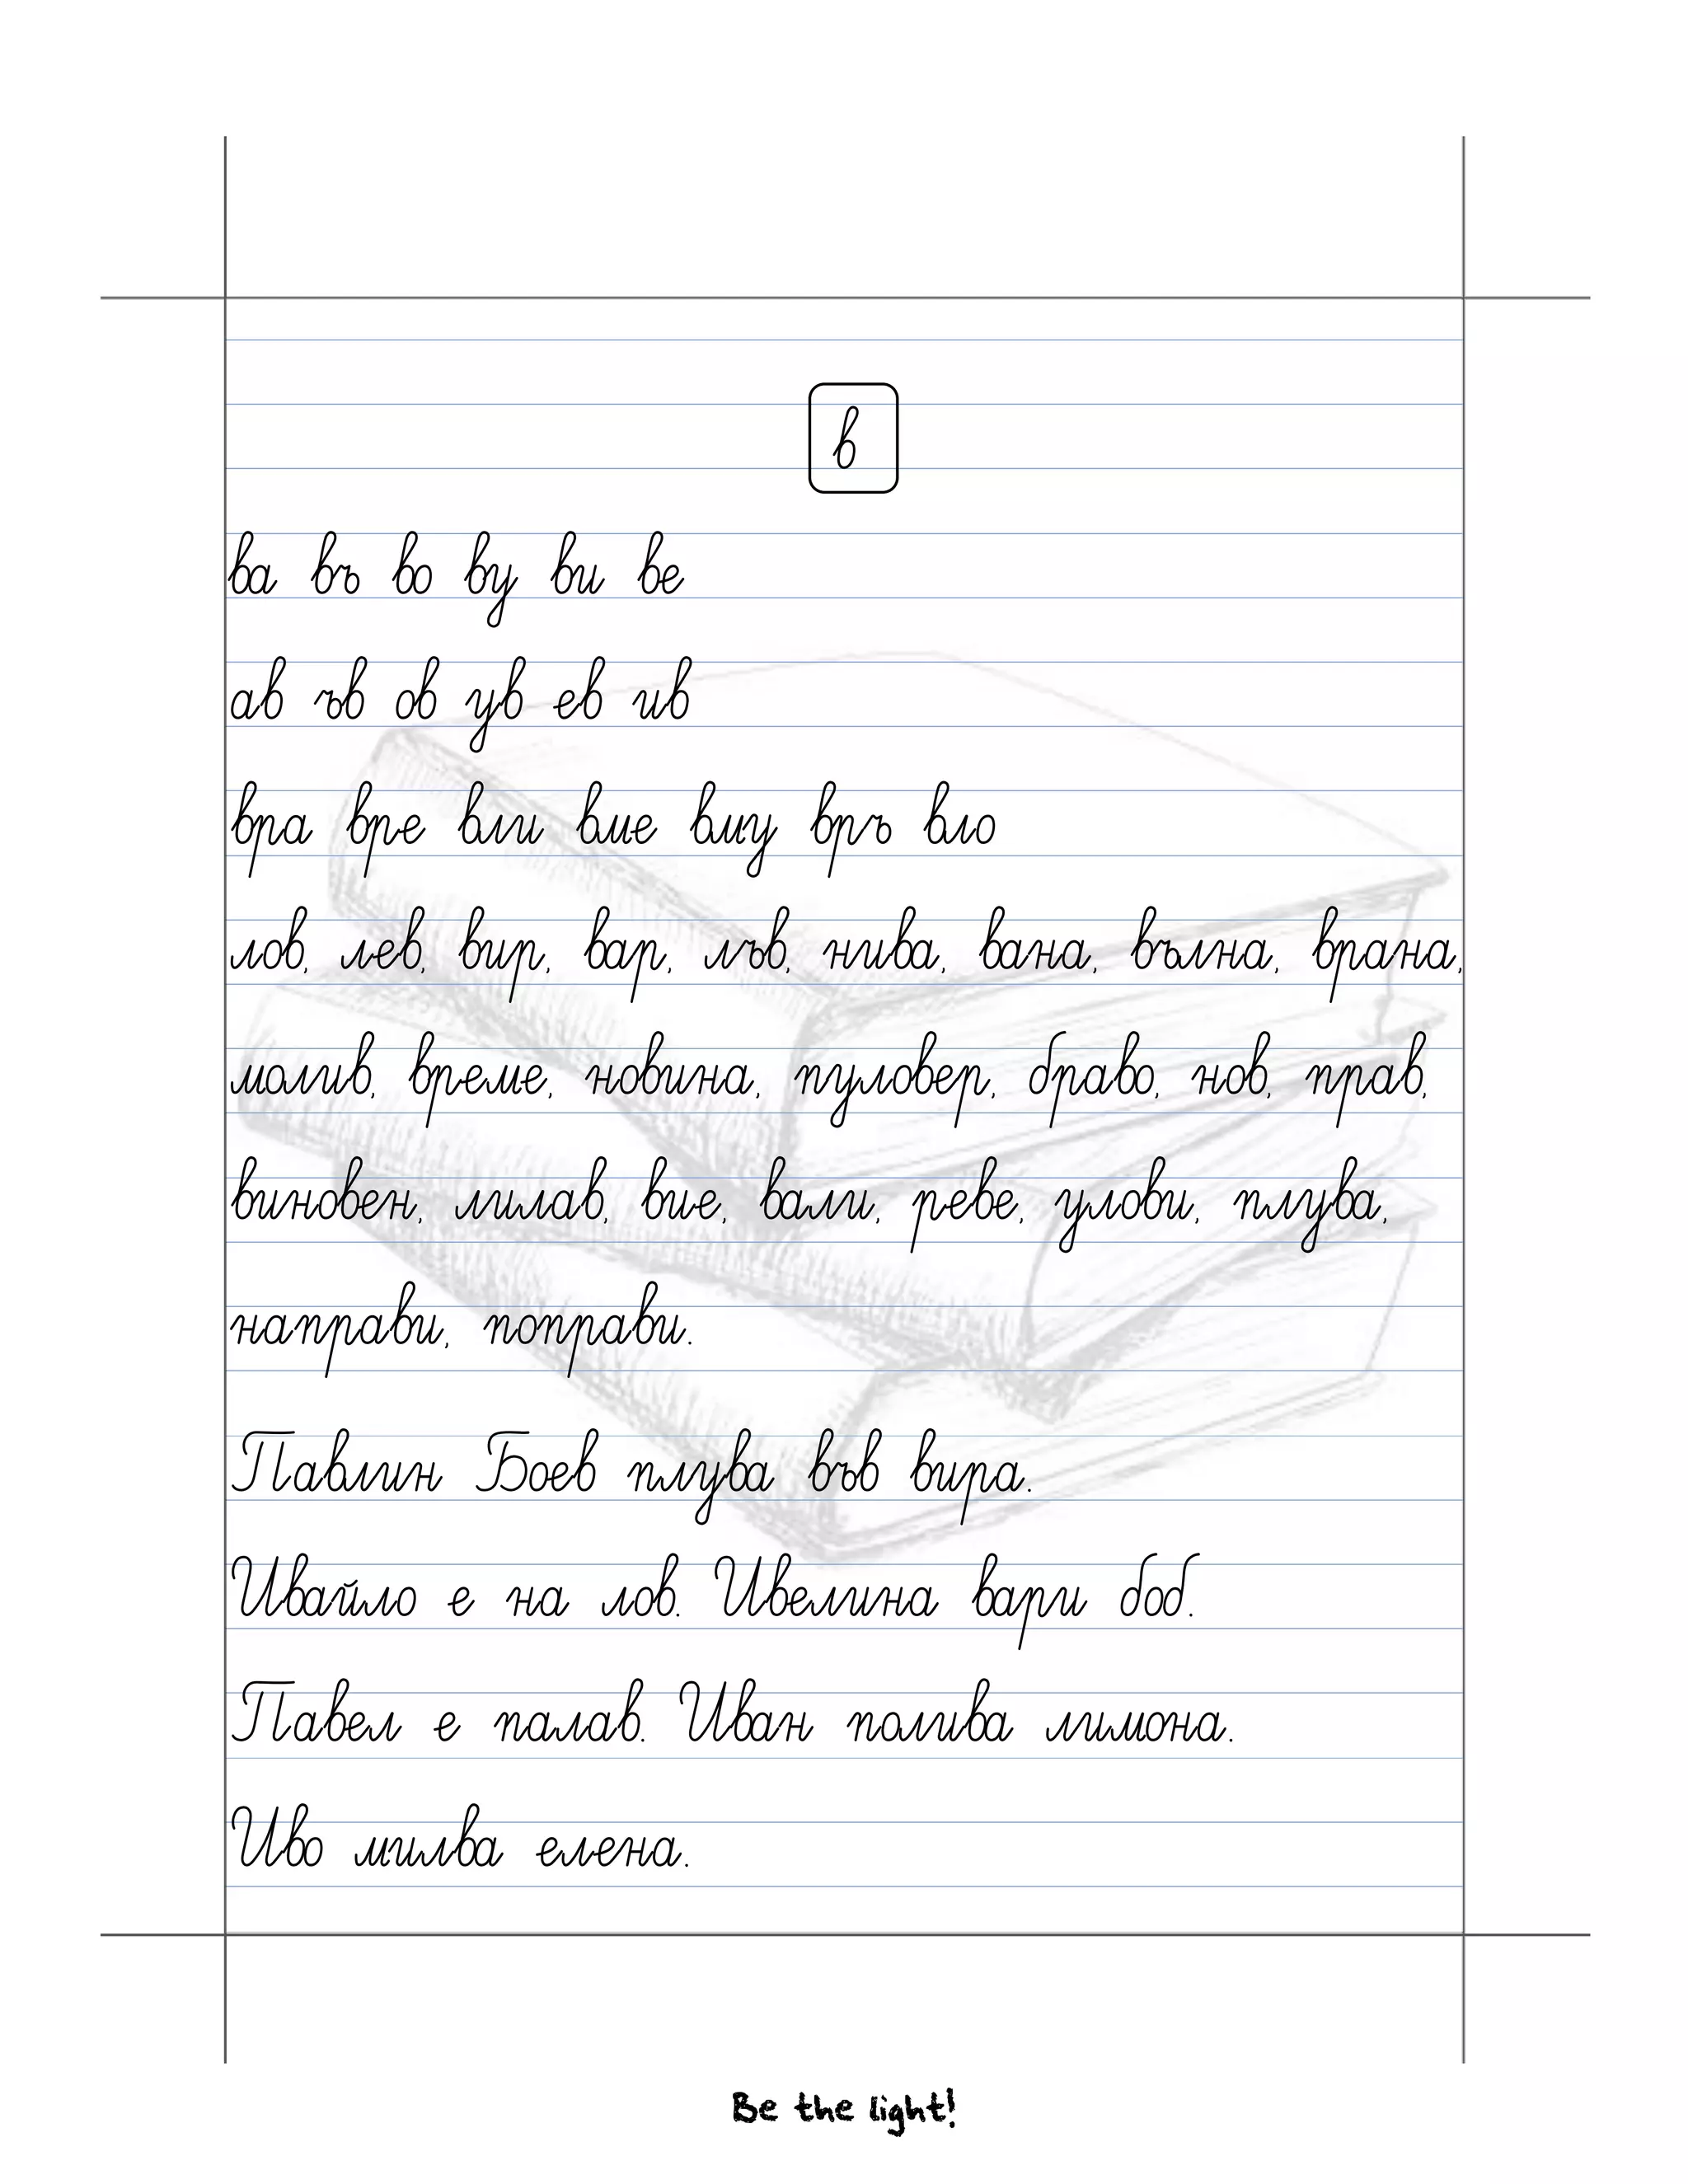 в
ва въ во ву ви ве
ав ъв ов ув ев ив
вра вре вли вме вму връ вло
лов, лев, вир, вар, лъв, нива, вана, вълна, врана,
молив, време, новина, пуловер, браво, нов, прав,
виновен, лилав, вие, вали, реве, улови, плува,
направи, поправи.
Павлин Боев плува във вира.
Ивайло е на лов. Ивелина вари боб.
Павел е палав. Иван полива лимона.
Иво милва елена.
Be the light!